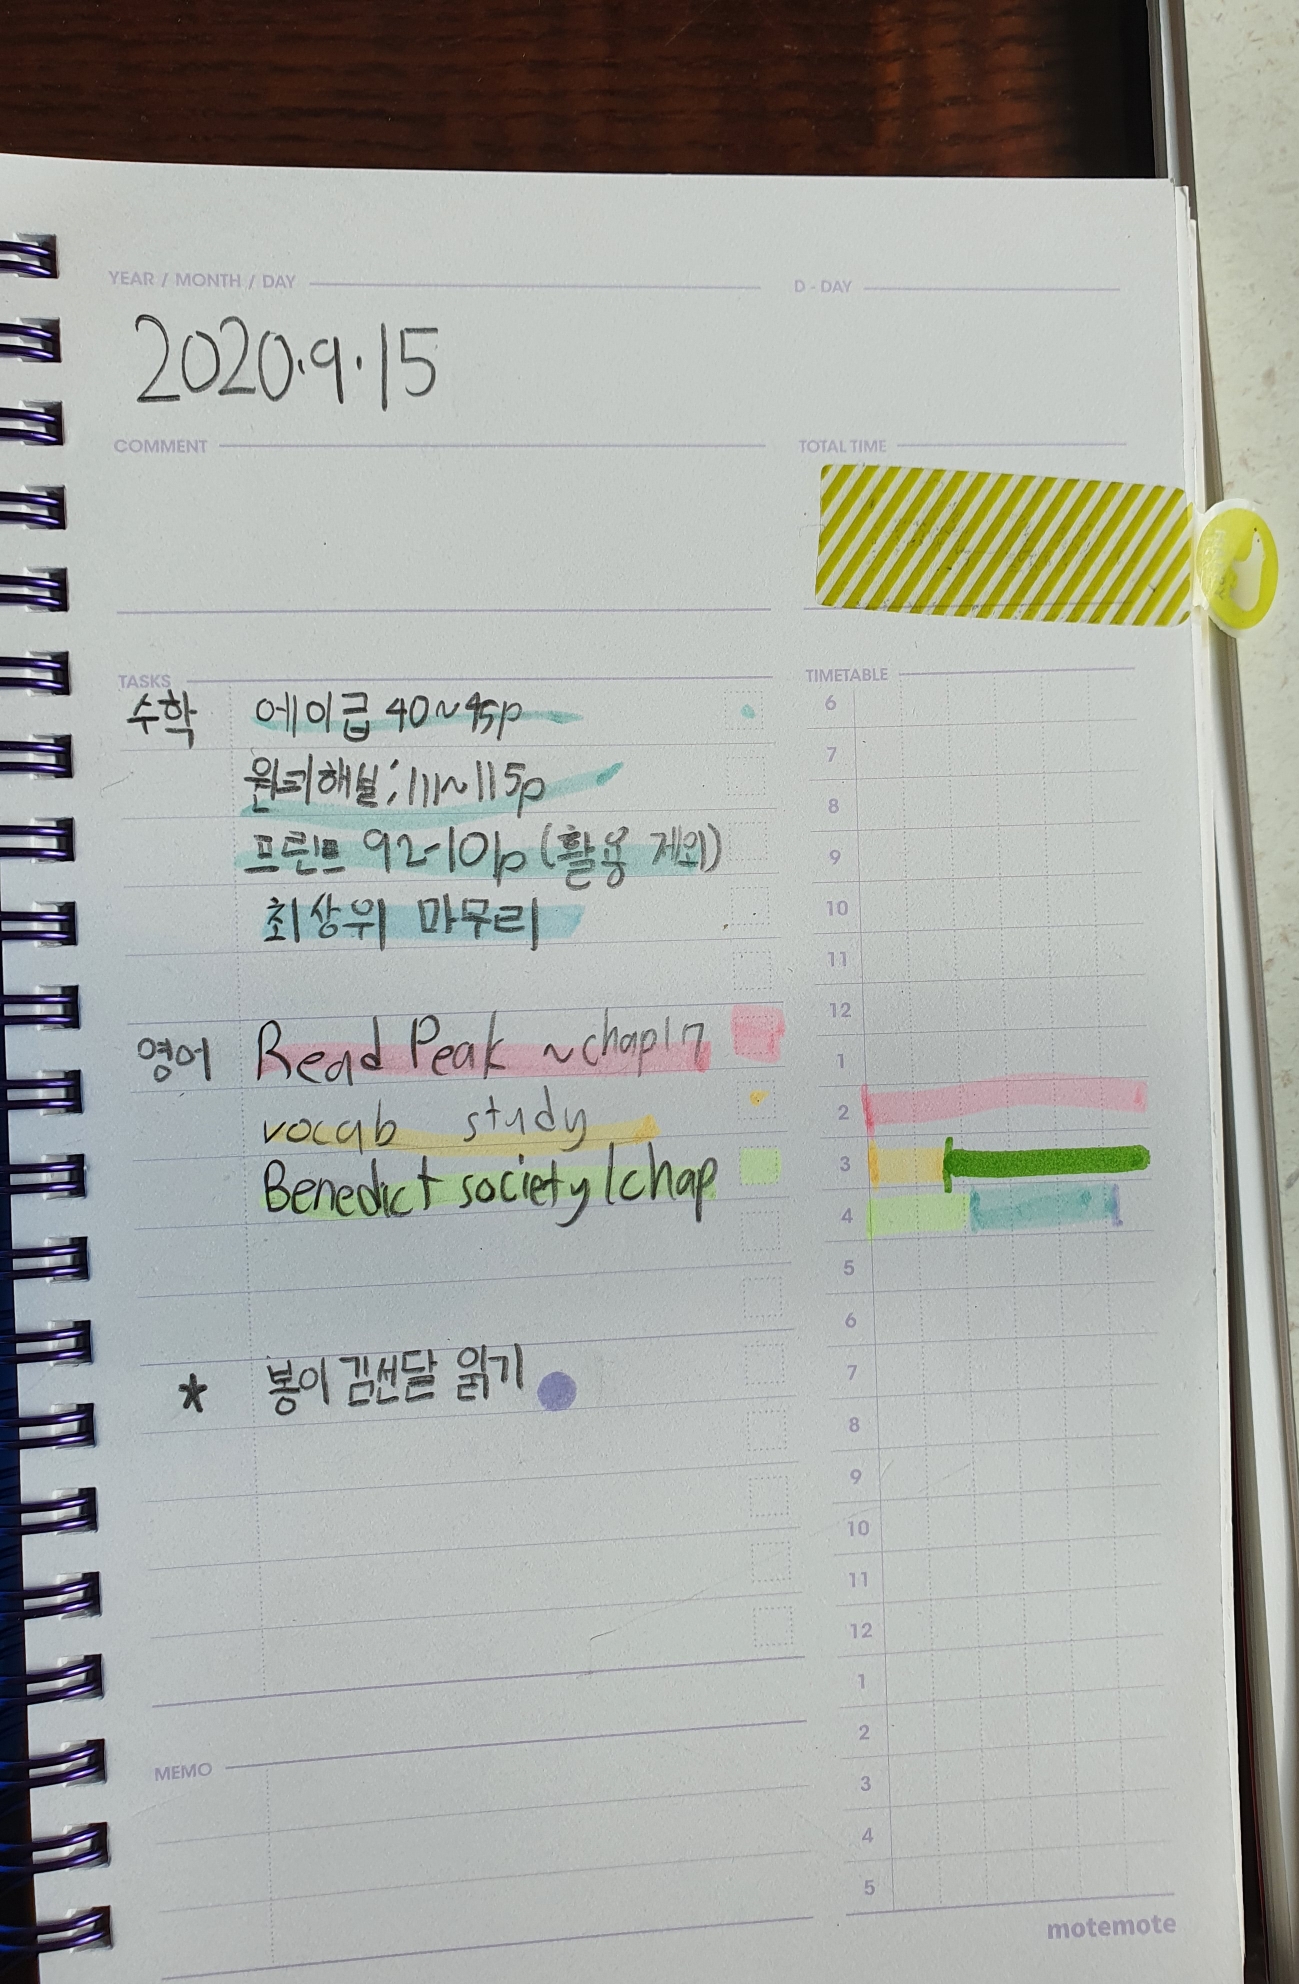 YEAR / MONTH / DAY
D - DAY
2020.9.15
COMMENT
TOTAL TIME
TASKS
TIMETABLE
수학 에이급 40~45p
해설; 111~115p
프린트 92-101p (활용 제외)
최상위 마무리
영어 Read Peak ~chap17
vocab study
Benedict society 1chap
* 봉이 김선달 읽기
MEMO
6
7
8
9
10
11
12
1
2
3
4
5
6
7
8
9
10
11
12
1
2
3
4
5
motemote